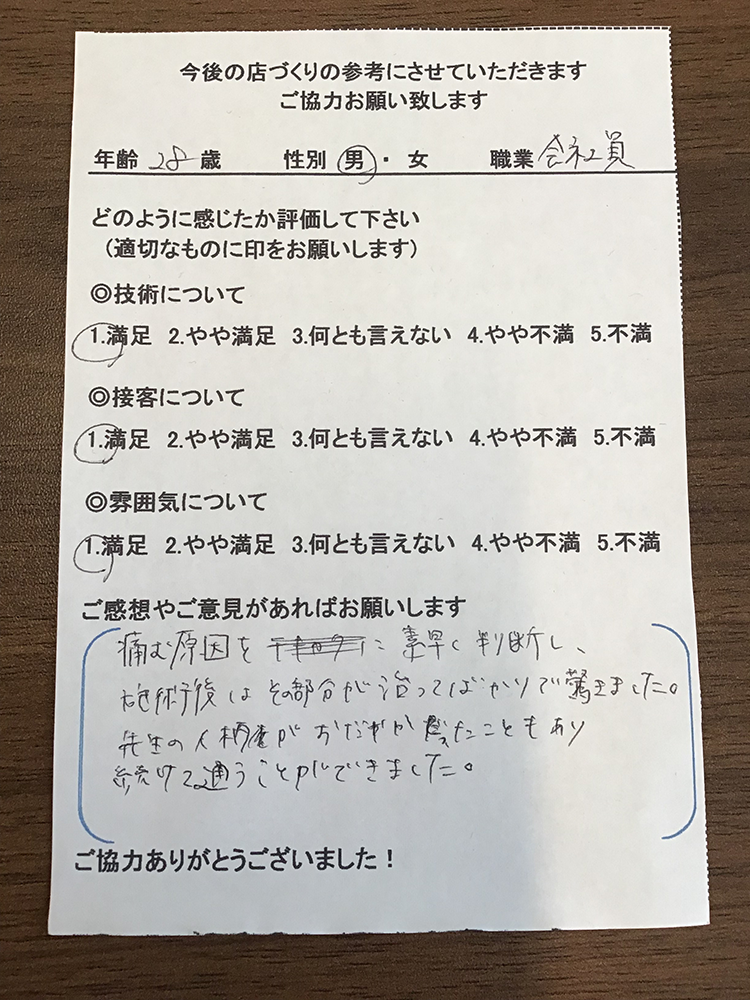 今後の店づくりの参考にさせていただきます
ご協力お願い致します
年齢 28 歳 性別 男・女 職業 会社員
どのように感じたか評価して下さい
（適切なものに印をお願いします）
◎技術について
1.満足 2.やや満足 3.何とも言えない 4.やや不満 5.不満
◎接客について
1.満足 2.やや満足 3.何とも言えない 4.やや不満 5.不満
◎雰囲気について
1.満足 2.やや満足 3.何とも言えない 4.やや不満 5.不満
ご感想やご意見があればお願いします
痛む原因を に 素早く判断し、
施術後はその部分が治ってばかりで驚きました。
先生の人柄が おだやか だったこともあり
続けて通うことができました。
ご協力ありがとうございました！